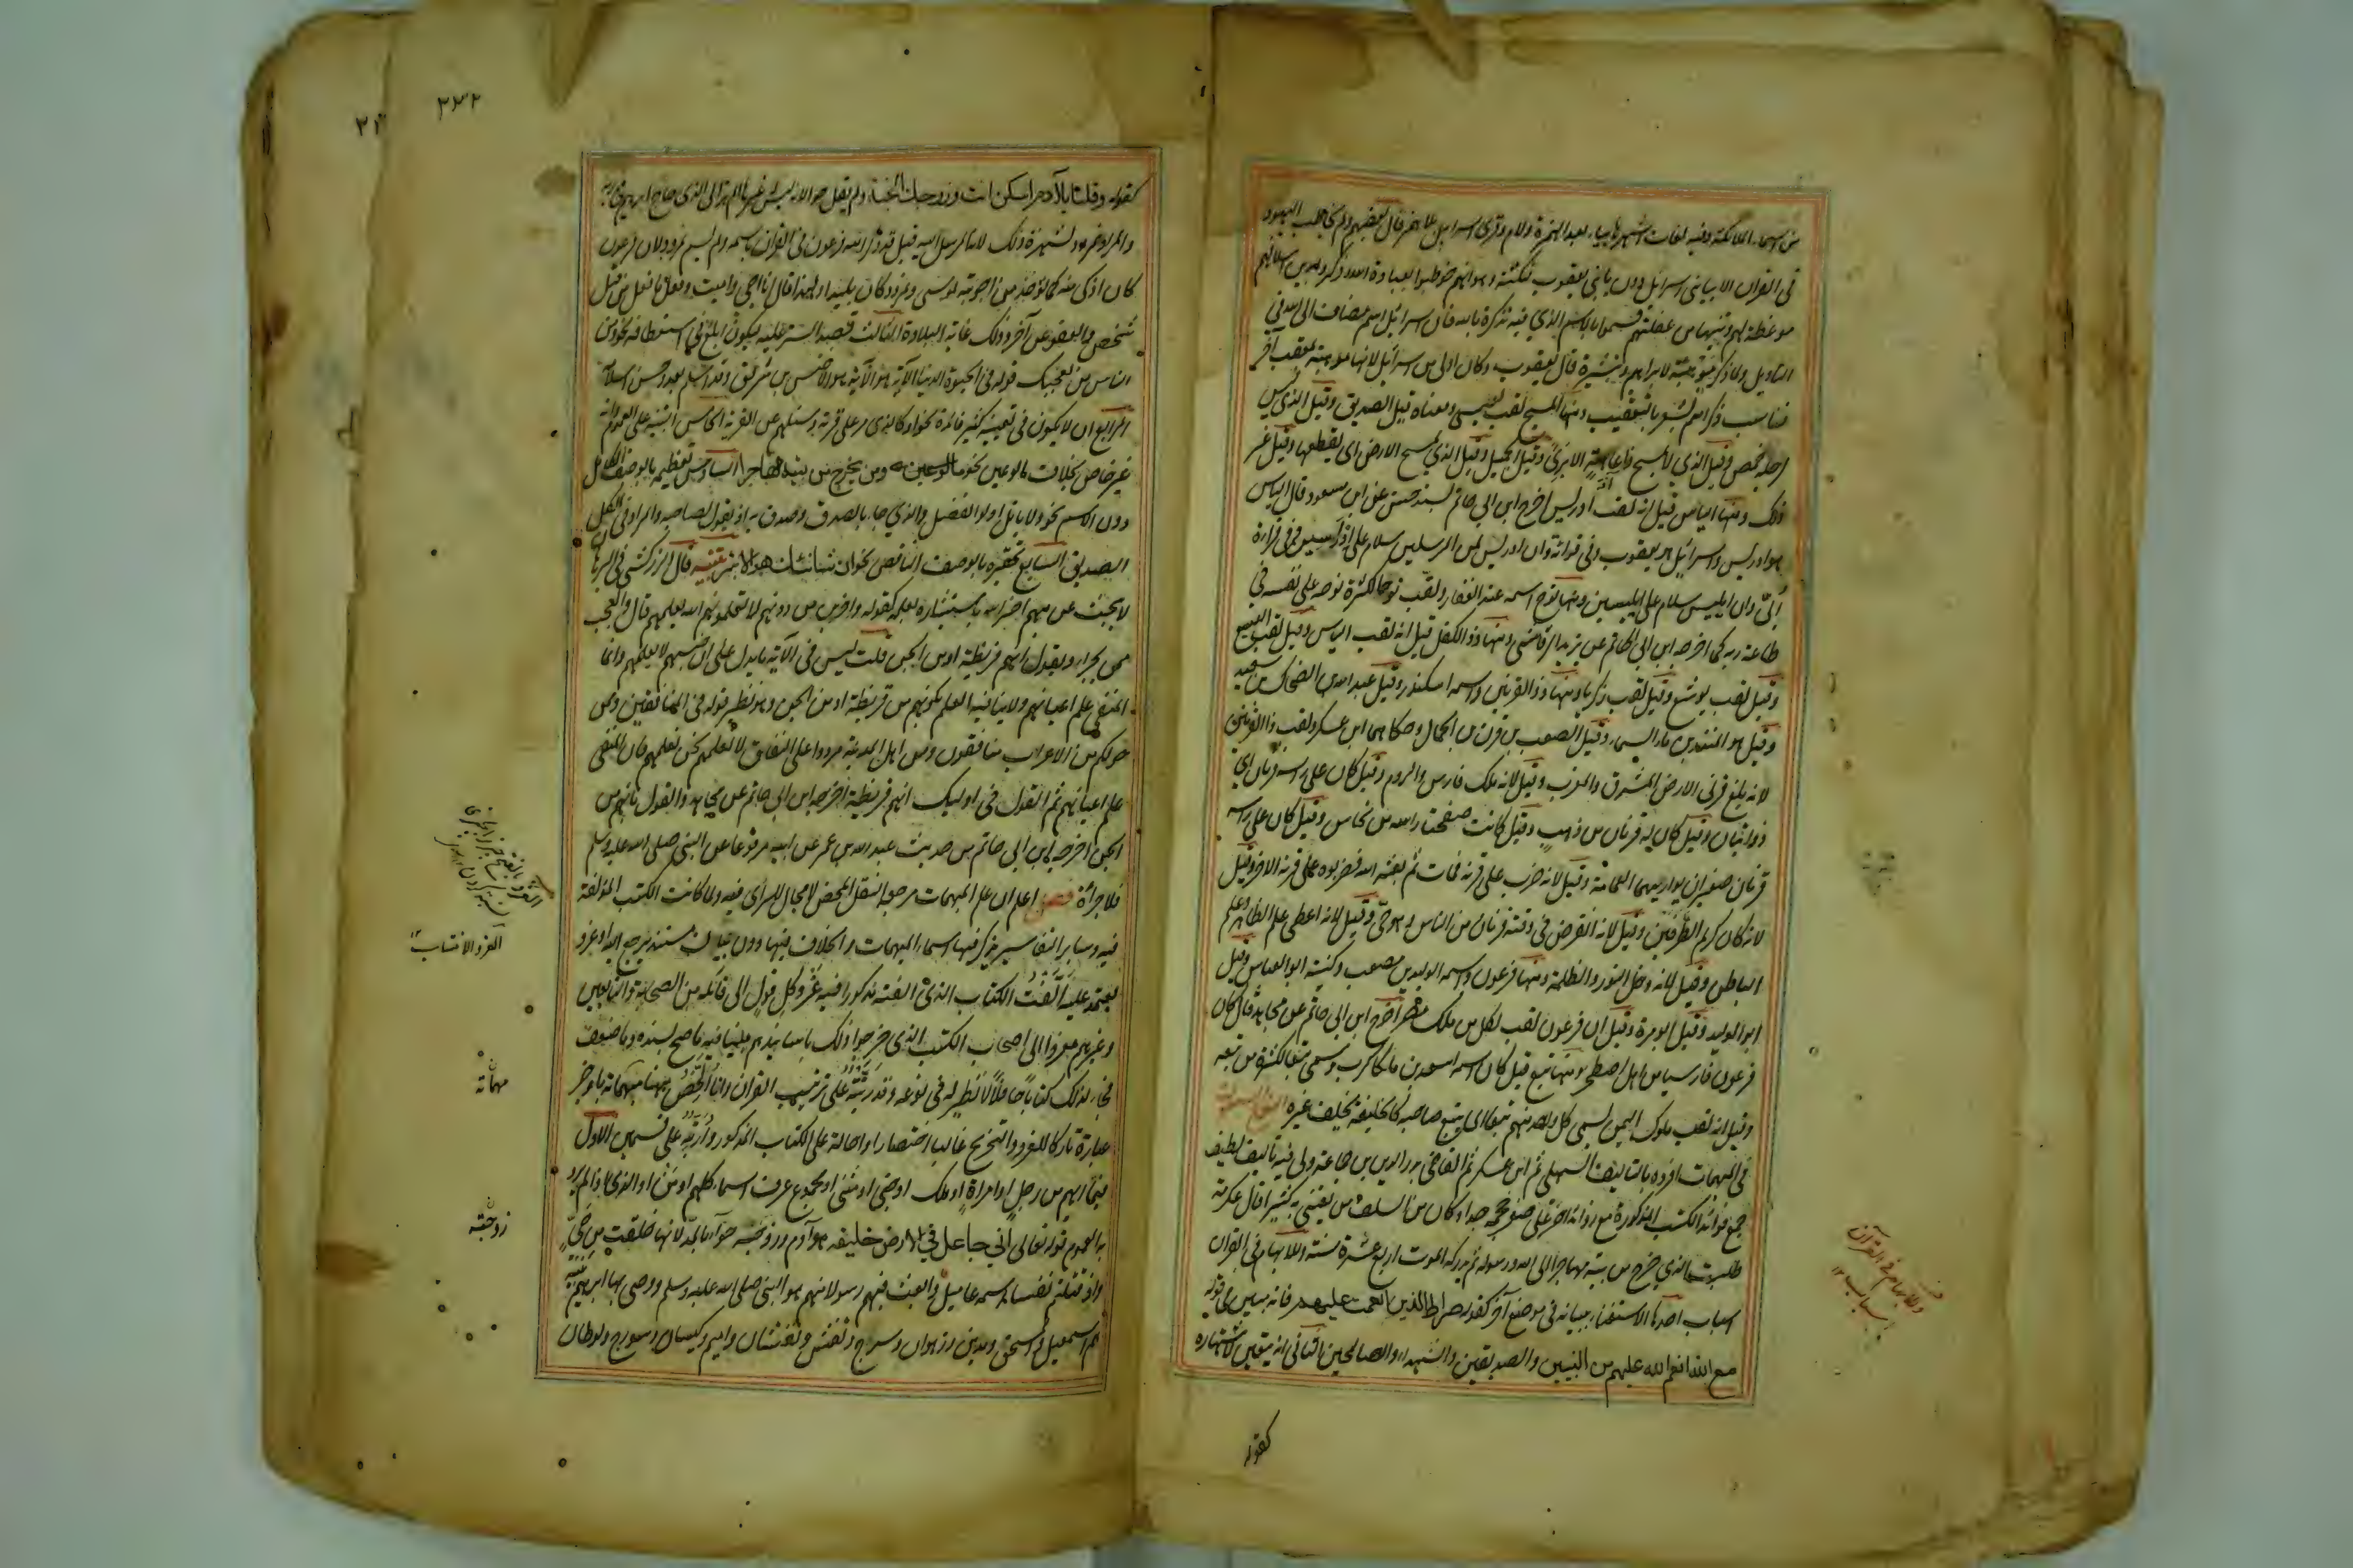 من اسماء الملائكة وفيه لغات اشهرها بياء بعد الهمزة ولام وقرئ اسرائيل بلا همز قال بعضهم ولم يخاطب اليهود
في القرآن الا بيابني اسرائيل دون يا بني يعقوب لنكتة وهو انهم خوطبوا بعبادة الله وذكروا بدين اسلافهم
موعظة لهم وتنبيها من غفلتهم فسموا بالاسم الذي فيه تذكرة بالله فان اسرائيل اسم مضاف الى الله في
التأويل ولما ذكر موهبته لابراهيم وتبشيره قال يعقوب وكان اولى من اسرائيل لانها موهبة بمعقب آخر
فناسب ذكر اسم يشعر بالتعقيب ومنها المسيح لقب لعيسى ومعناه قيل الصديق وقيل الذي ليس
لرجله اخمص وقيل الذي لا يمسح ذا عاهة الا برئ وقيل الجميل وقيل الذي يمسح الارض اي يقطعها وقيل غير
ذلك ومنها الياس قيل انه لقب ادريس اخرج ابن ابي حاتم بسند حسن عن ابن مسعود قال الياس
هو ادريس واسرائيل هو يعقوب وفي قراءته وان ادريس لمن المرسلين سلام على ادراسين وفي قراءة
أبيّ وان ايليس سلام على ايليسين ومنها نوح اسمه عبد الغفار ولقب نوحا لكثرة نوحه على نفسه في
طاعة ربه كما اخرجه ابن ابي حاتم عن يزيد الرقاشي ومنها ذو الكفل قيل انه لقب الياس وقيل لقب اليسع
وقيل لقب يوشع وقيل لقب زكريا ومنها ذو القرنين واسمه اسكندر وقيل عبد الله بن الضحاك بن سعد
وقيل هو المنذر بن ماء السماء وقيل الصعب بن قرن بن الهمال وحكاهما ابن عسكر ولقب ذا القرنين
لانه بلغ قرني الارض المشرق والمغرب وقيل لانه ملك فارس والروم وقيل كان على رأسه قرنان اي
ذؤابتان وقيل كان له قرنان من ذهب وقيل كانت صفحتا رأسه من نحاس وقيل كان على رأسه
قرنان صغيران يواريهما العمامة وقيل لانه ضرب على قرنه فمات ثم بعثه الله فضربوه على قرنه الآخر وقيل
لانه كان كريم الطرفين وقيل لانه انقرض في وقته قرنان من الناس وهو حي وقيل لانه اعطى علم الظاهر وعلم
الباطن وقيل لانه دخل النور والظلمة ومنها فرعون واسمه الوليد بن مصعب وكنيته ابو العباس وقيل
ابو الوليد وقيل ابو مرة وقيل ان فرعون لقب لكل من ملك مصر اخرج ابن ابي حاتم عن مجاهد قال كان
فرعون فارسيا من اهل اصطخر ومنها تبع قيل كان اسمه اسعد بن ملكي كرب وسمي تبعا لكثرة من تبعه
وقيل انه لقب ملوك اليمن يسمى كل واحد منهم تبعا اي يتبع صاحبه كالخليفة يخلف غيره
في المبهمات افرده بالتأليف السهيلي ثم ابن عسكر ثم القاضي بدر الدين بن جماعة ولي فيه تأليف لطيف
جمع فوائد الكتب المذكورة مع زوائد اخر على صغر حجمه جدا وكان من السلف من يعتني به كثيرا قال عكرمة
طلبت الذي خرج من بيته مهاجرا الى الله ورسوله ثم يدركه الموت اربع عشرة سنة وللابهام في القرآن
اسباب احدها الاستغناء ببيانه في موضع آخر كقوله صراط الذين انعمت عليهم فانه مبين في قوله
مع الذين انعم الله عليهم من النبيين والصديقين والشهداء والصالحين الثاني انه يتعين لاشتهاره
كقوله
وللابهام في القرآن
اسباب ١٢
٢٣٢
كقوله وقلنا يا آدم اسكن انت وزوجك الجنة ولم يقل حواء لانه ليس له غيرها الم تر الى الذي حاج ابراهيم في ربه
والمراد نمرود لشهرة ذلك لانه المرسل اليه قيل وقد ذكر الله فرعون في القرآن باسمه ولم يسم نمرود لان فرعون
كان اذكى منه كما يؤخذ من اجوبته لموسى ونمرود كان بليدا ولهذا قال انا احيي واميت وفعل ما فعل من قتل
شخص والعفو عن آخر وذلك غاية البلادة الثالث قصد الستر عليه ليكون ابلغ في استعطافه نحو ومن
الناس من يعجبك قوله في الحيوة الدنيا الآية هو الاخنس بن شريق وقد اسلم بعد وحسن اسلامه
الرابع ان لا يكون في تعيينه كثير فائدة نحو او كالذي مر على قرية وسئلهم عن القرية الخامس التنبيه على العموم وانه
غير خاص بخلاف ما لو عين نحو ومن يخرج من بيته مهاجرا السادس تعظيمه بالوصف الكامل
دون الاسم نحو ولا ياتل اولوا الفضل والذي جاء بالصدق وصدق به اذ يقول لصاحبه والمراد في الكل
الصديق السابع تحقيره بالوصف الناقص نحو ان شانئك هو الابتر تنبيه قال الزركشي في البرهان
لا يبحث عن مبهم اخبر الله باستيثاره بعلمه كقوله وآخرين من دونهم لا تعلمونهم الله يعلمهم قال والعجب
ممن تجرأ وقال انهم قريظة او من الجن قلت ليس في الآية ما يدل على ان جنسهم لا يعلم وانما
المنفي علم اعيانهم ولا ينافيه العلم بكونهم من قريظة او من الجن وهو نظير قوله في المنافقين وممن
حولكم من الاعراب منافقون ومن اهل المدينة مردوا على النفاق لا تعلمهم نحن نعلمهم فان المنفي
علم اعيانهم ثم القول في اولئك انهم قريظة اخرجه ابن ابي حاتم عن مجاهد والقول بانهم من
الجن اخرجه ابن ابي حاتم من حديث عبد الله بن عمر عن ابيه مرفوعا عن النبي صلى الله عليه وسلم
فلا جراءة فصل اعلم ان علم المبهمات مرجعه النقل المحض لا مجال للرأي فيه ولما كانت الكتب المؤلفة
فيه وسائر التفاسير يذكر فيها اسماء المبهمات والخلاف فيها دون بيان مستند يرجع اليه او عزو
يعتمد عليه ألفت الكتاب الذي الفته مذكورا فيه عزو كل قول الى قائله من الصحابة والتابعين
وغيرهم معزوا الى اصحاب الكتب الذي خرجوا ذلك باسانيدهم مبينا فيه ما صح سنده وما ضعف
فجاء لذلك كتابا حافلا لا نظير له في نوعه وقد رتبته على ترتيب القرآن وانا ألخص ههنا مبهماته باوجز
عبارة تاركا للعزو والتخريج غالبا اختصارا واحالة على الكتاب المذكور وأرتبه على قسمين الاول
فيما ابهم من رجل او امرأة او ملك او جني او مثنى او مجموع عرف اسماء كلهم او من او الذي اذا لم يرد
به العموم قوله تعالى اني جاعل في الارض خليفة هو آدم وزوجته حواء بالمد لانها خلقت من حيّ
واذ قتلتم نفسا اسمه عاميل وابعث فيهم رسولا منهم هو النبي صلى الله عليه وسلم ووصى بها ابراهيم بنيه
هم اسمعيل واسحق ومدين وزمران وسرج ونفش ونفشان واميم وكيسان وسورج ولوطان
العزو الانتساب ١٢
مبهماته
زوجته